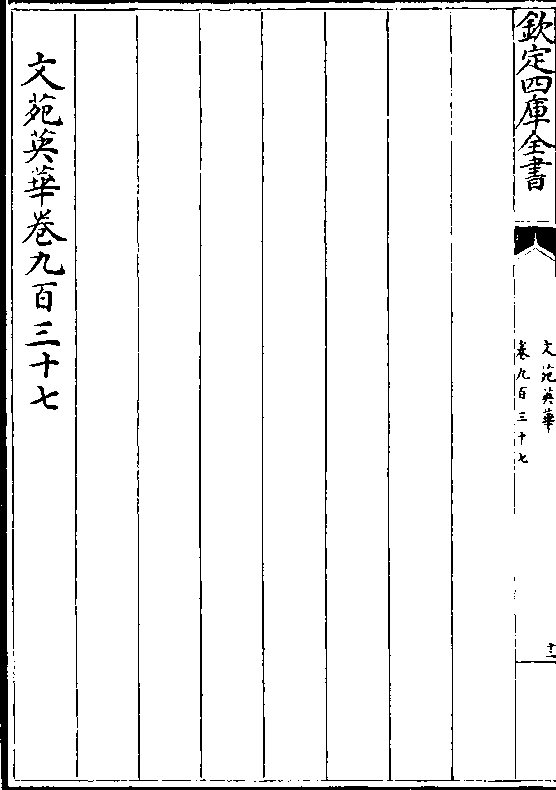 欽定四庫全書
文苑英華
卷九百三十七
十二
文苑英華卷九百三十七